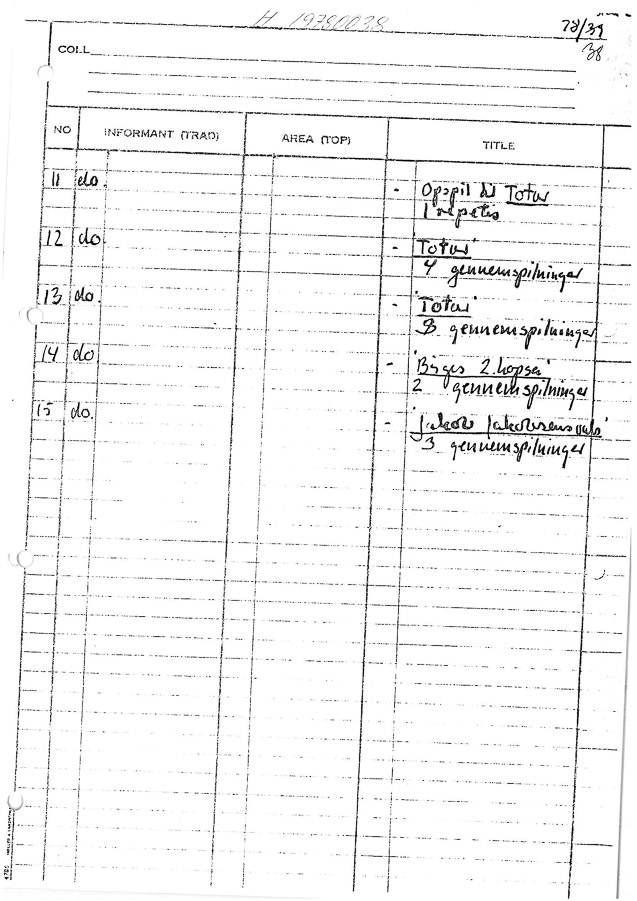 H 19780038
78/39
38
COLL
NO INFORMANT (TRAD) AREA (TOP) TITLE
11 do. - Opspil til Totur
1 repetis
12 do - Totur'
4 gennemspilninger
13 do. - 'Totur'
8 gennemspilninger
14 do - 'Birges 2. hopsa'
2 gennemspilninger
15 do. - 'Jakob Jakobsens vals'
3 gennemspilninger
4705